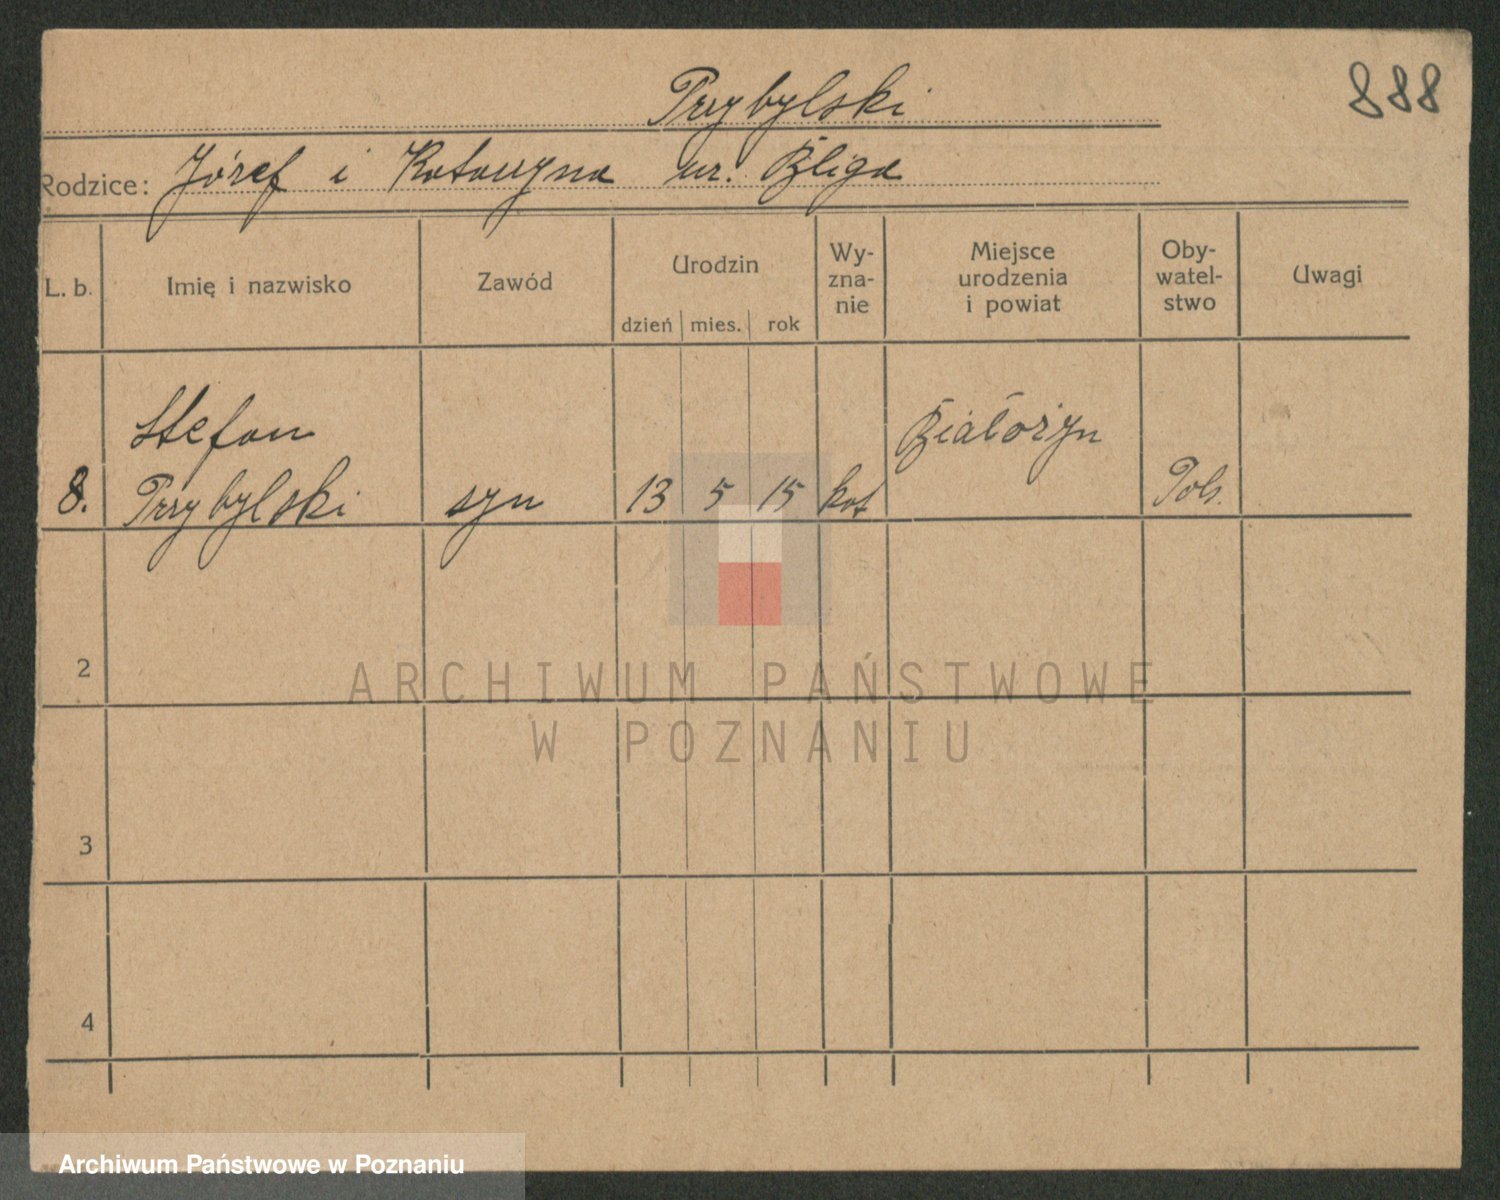 888
Przybylski
Rodzice: Józef i Katarzyna ur. Bliga
L. b.
Imię i nazwisko
Zawód
Urodzin
dzień mies. rok
Wy-
zna-
nie
Miejsce
urodzenia
i powiat
Oby-
watel-
stwo
Uwagi
Stefan
8. Przybylski syn 13 5 15 kat
Białożyn
Pols.
2
3
4
ARCHIWUM PAŃSTWOWE
W POZNANIU
Archiwum Państwowe w Poznaniu